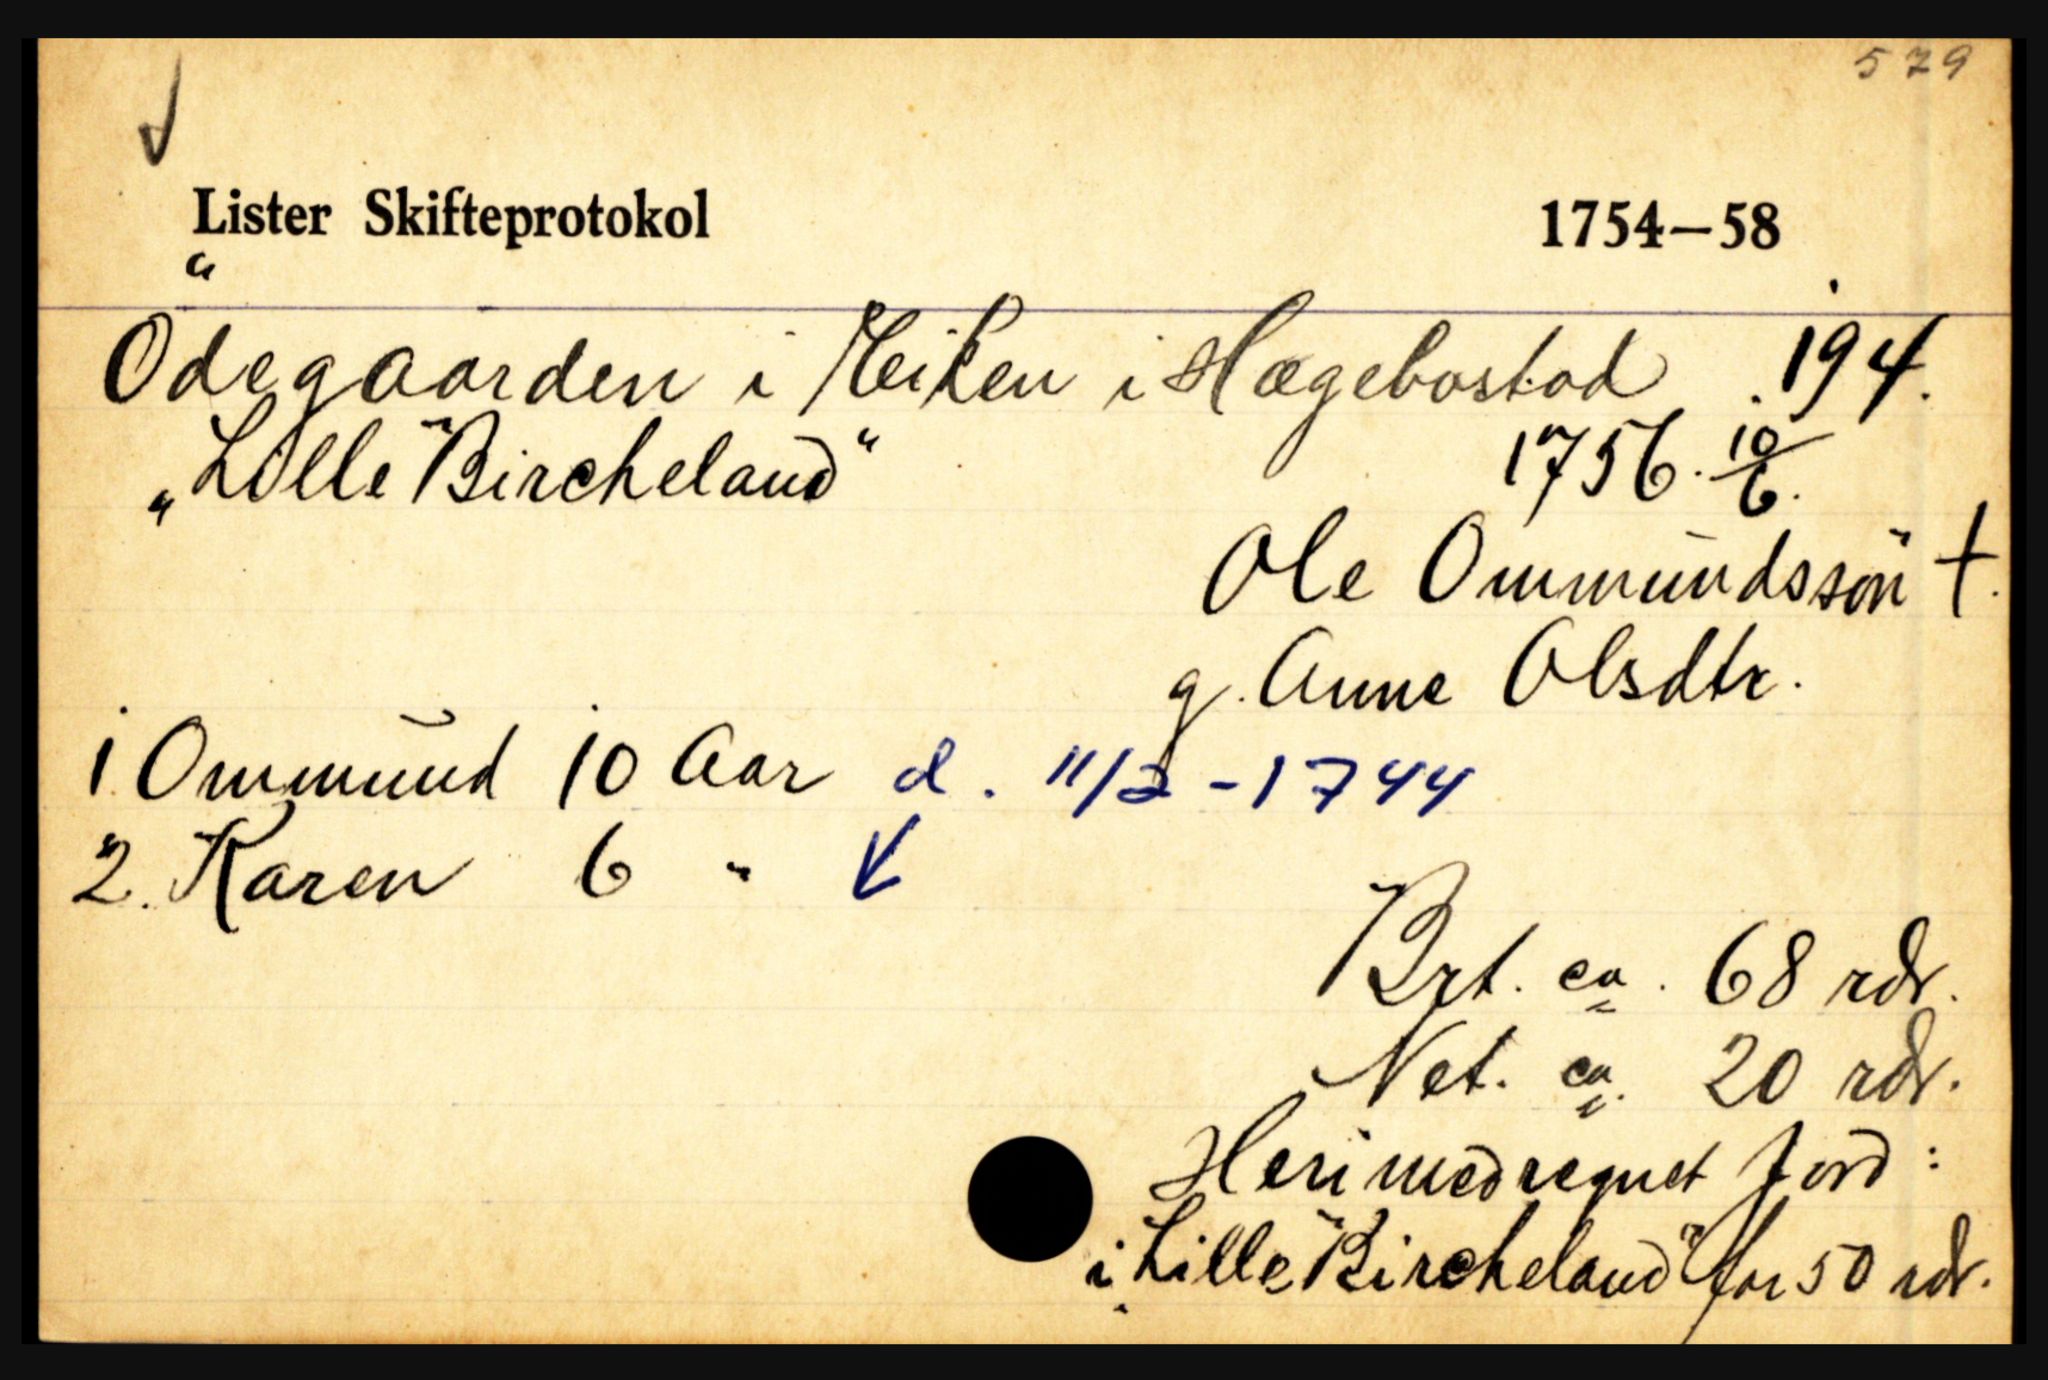 579
Lister Skifteprotokol 1754—58
Ödegaarden i Eiken i Hægebostad 194.
„Lille Bircheland“ 1756. 10/6.
Ole Ommundssön †.
g. Anne Olsdtr.
1. Ommund 10 Aar d. 11/2 - 1744
2. Karen 6 "
Brt. ca. 68 rdr.
Net. ca. 20 rdr.
Heri medregnet Jord:
i „Lille Bircheland“ for 50 rdr.